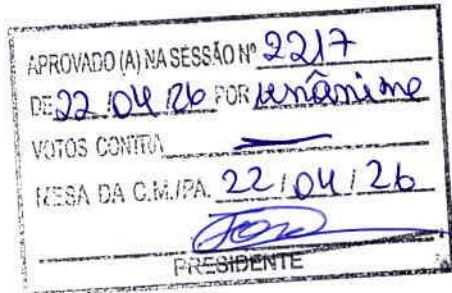 APROVADO (A) NA SESSÃO Nº 2217
DE 22 / 04 / 26 POR unânime
VOTOS CONTRA
MESA DA C.M./PA. 22 / 04 / 26
PRESIDENTE